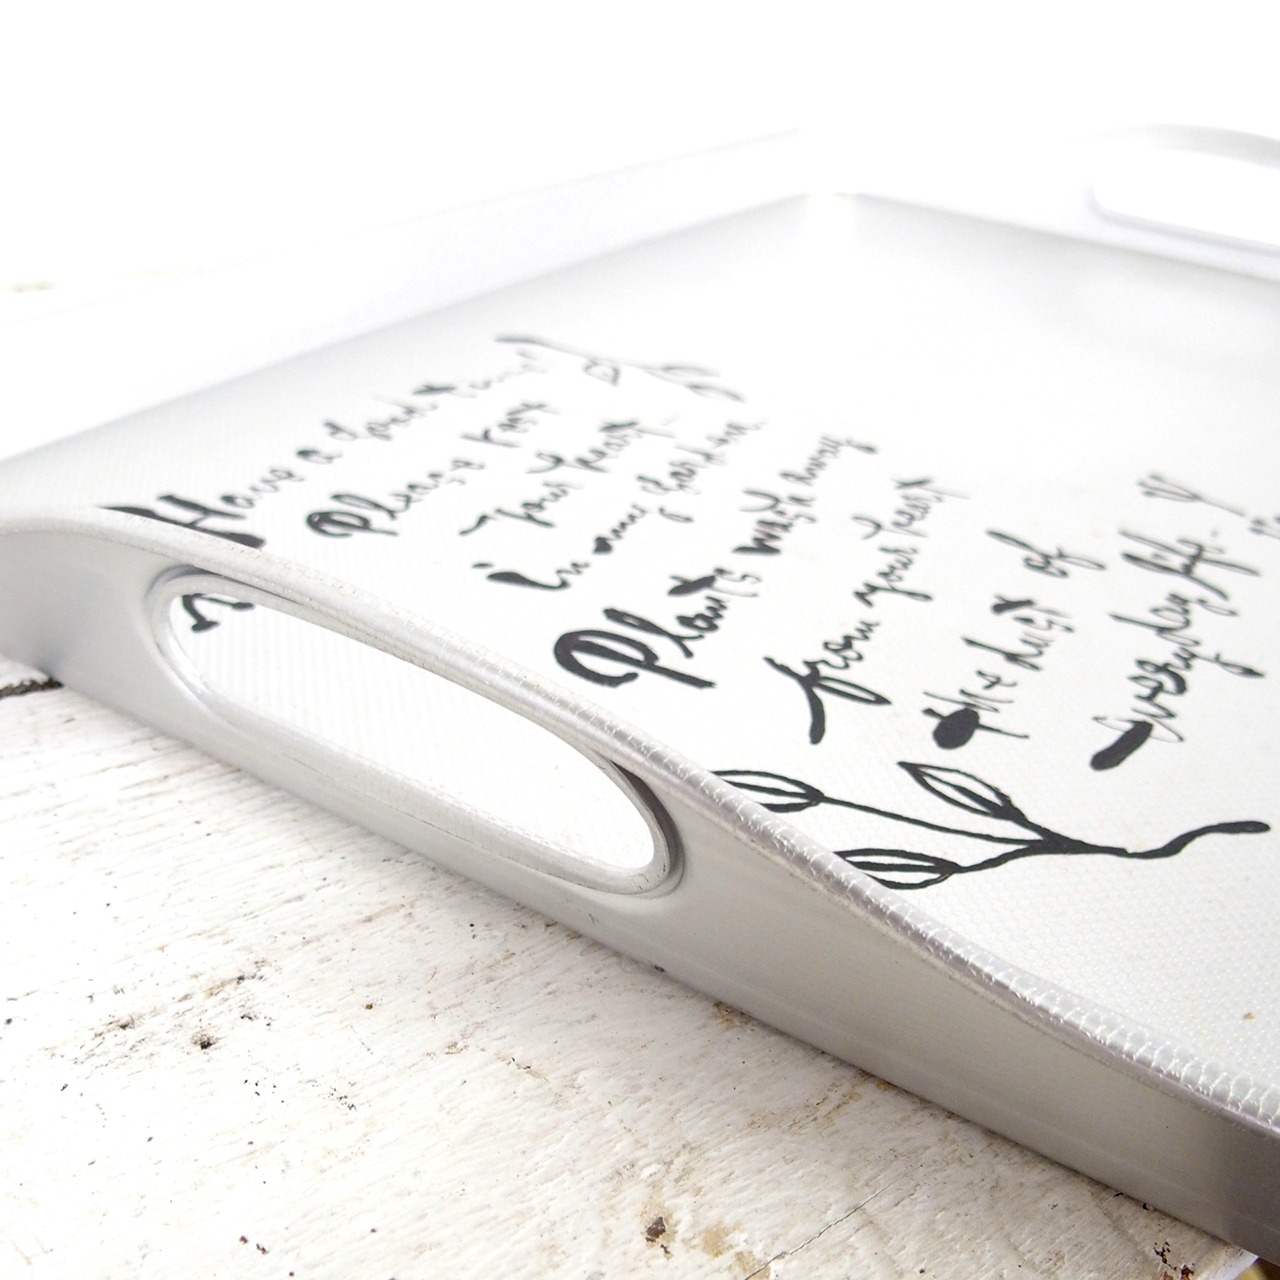 Have a good time!
Please keep
your heart
in my garden.
Plants waste away
from your heart
the dust of
everyday life.